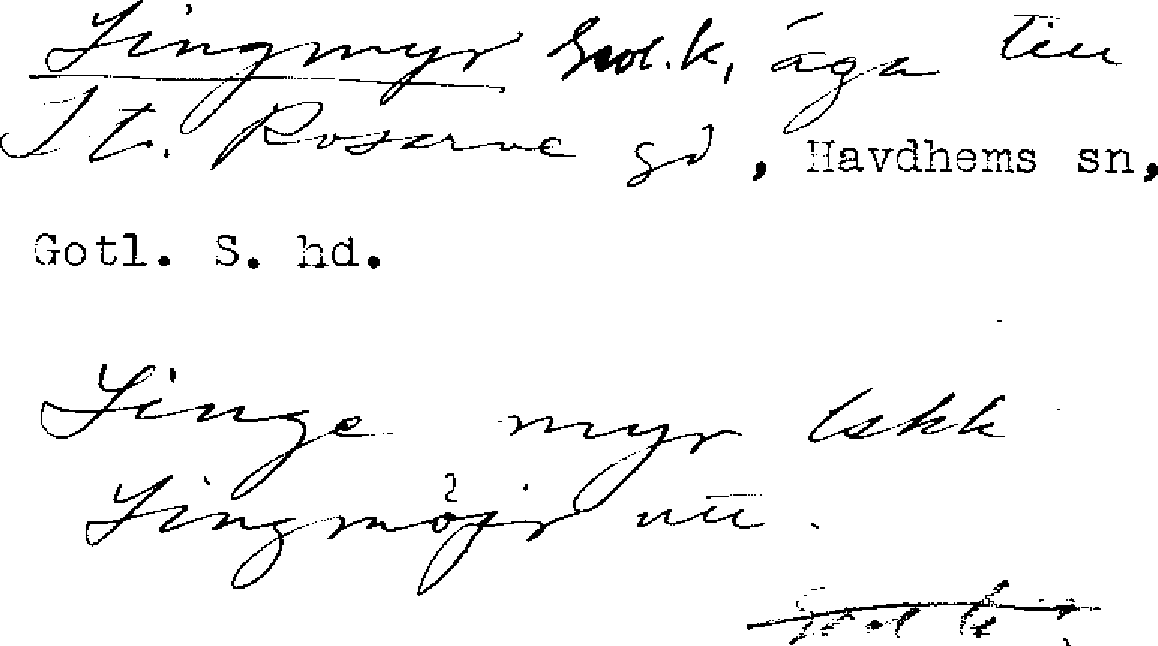 Lingmyr äga till
St. Rosarve gd, Havdhems sn,
Gotl. S. hd.
Linge myr lskk
Lingmöjr utt.